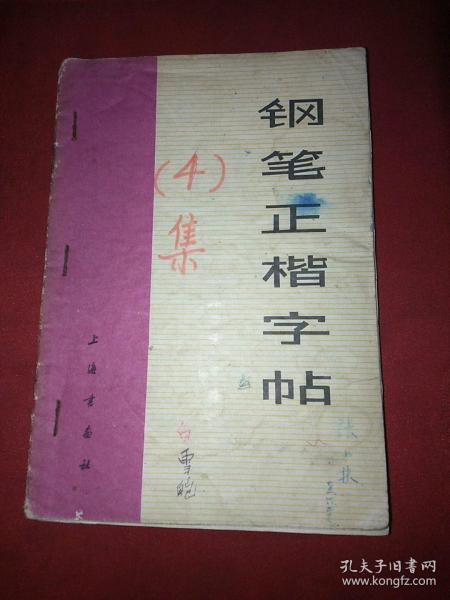 钢笔正楷字帖
（4）
集
上海书画社
白雪
张
孔夫子旧书网
www.kongfz.com